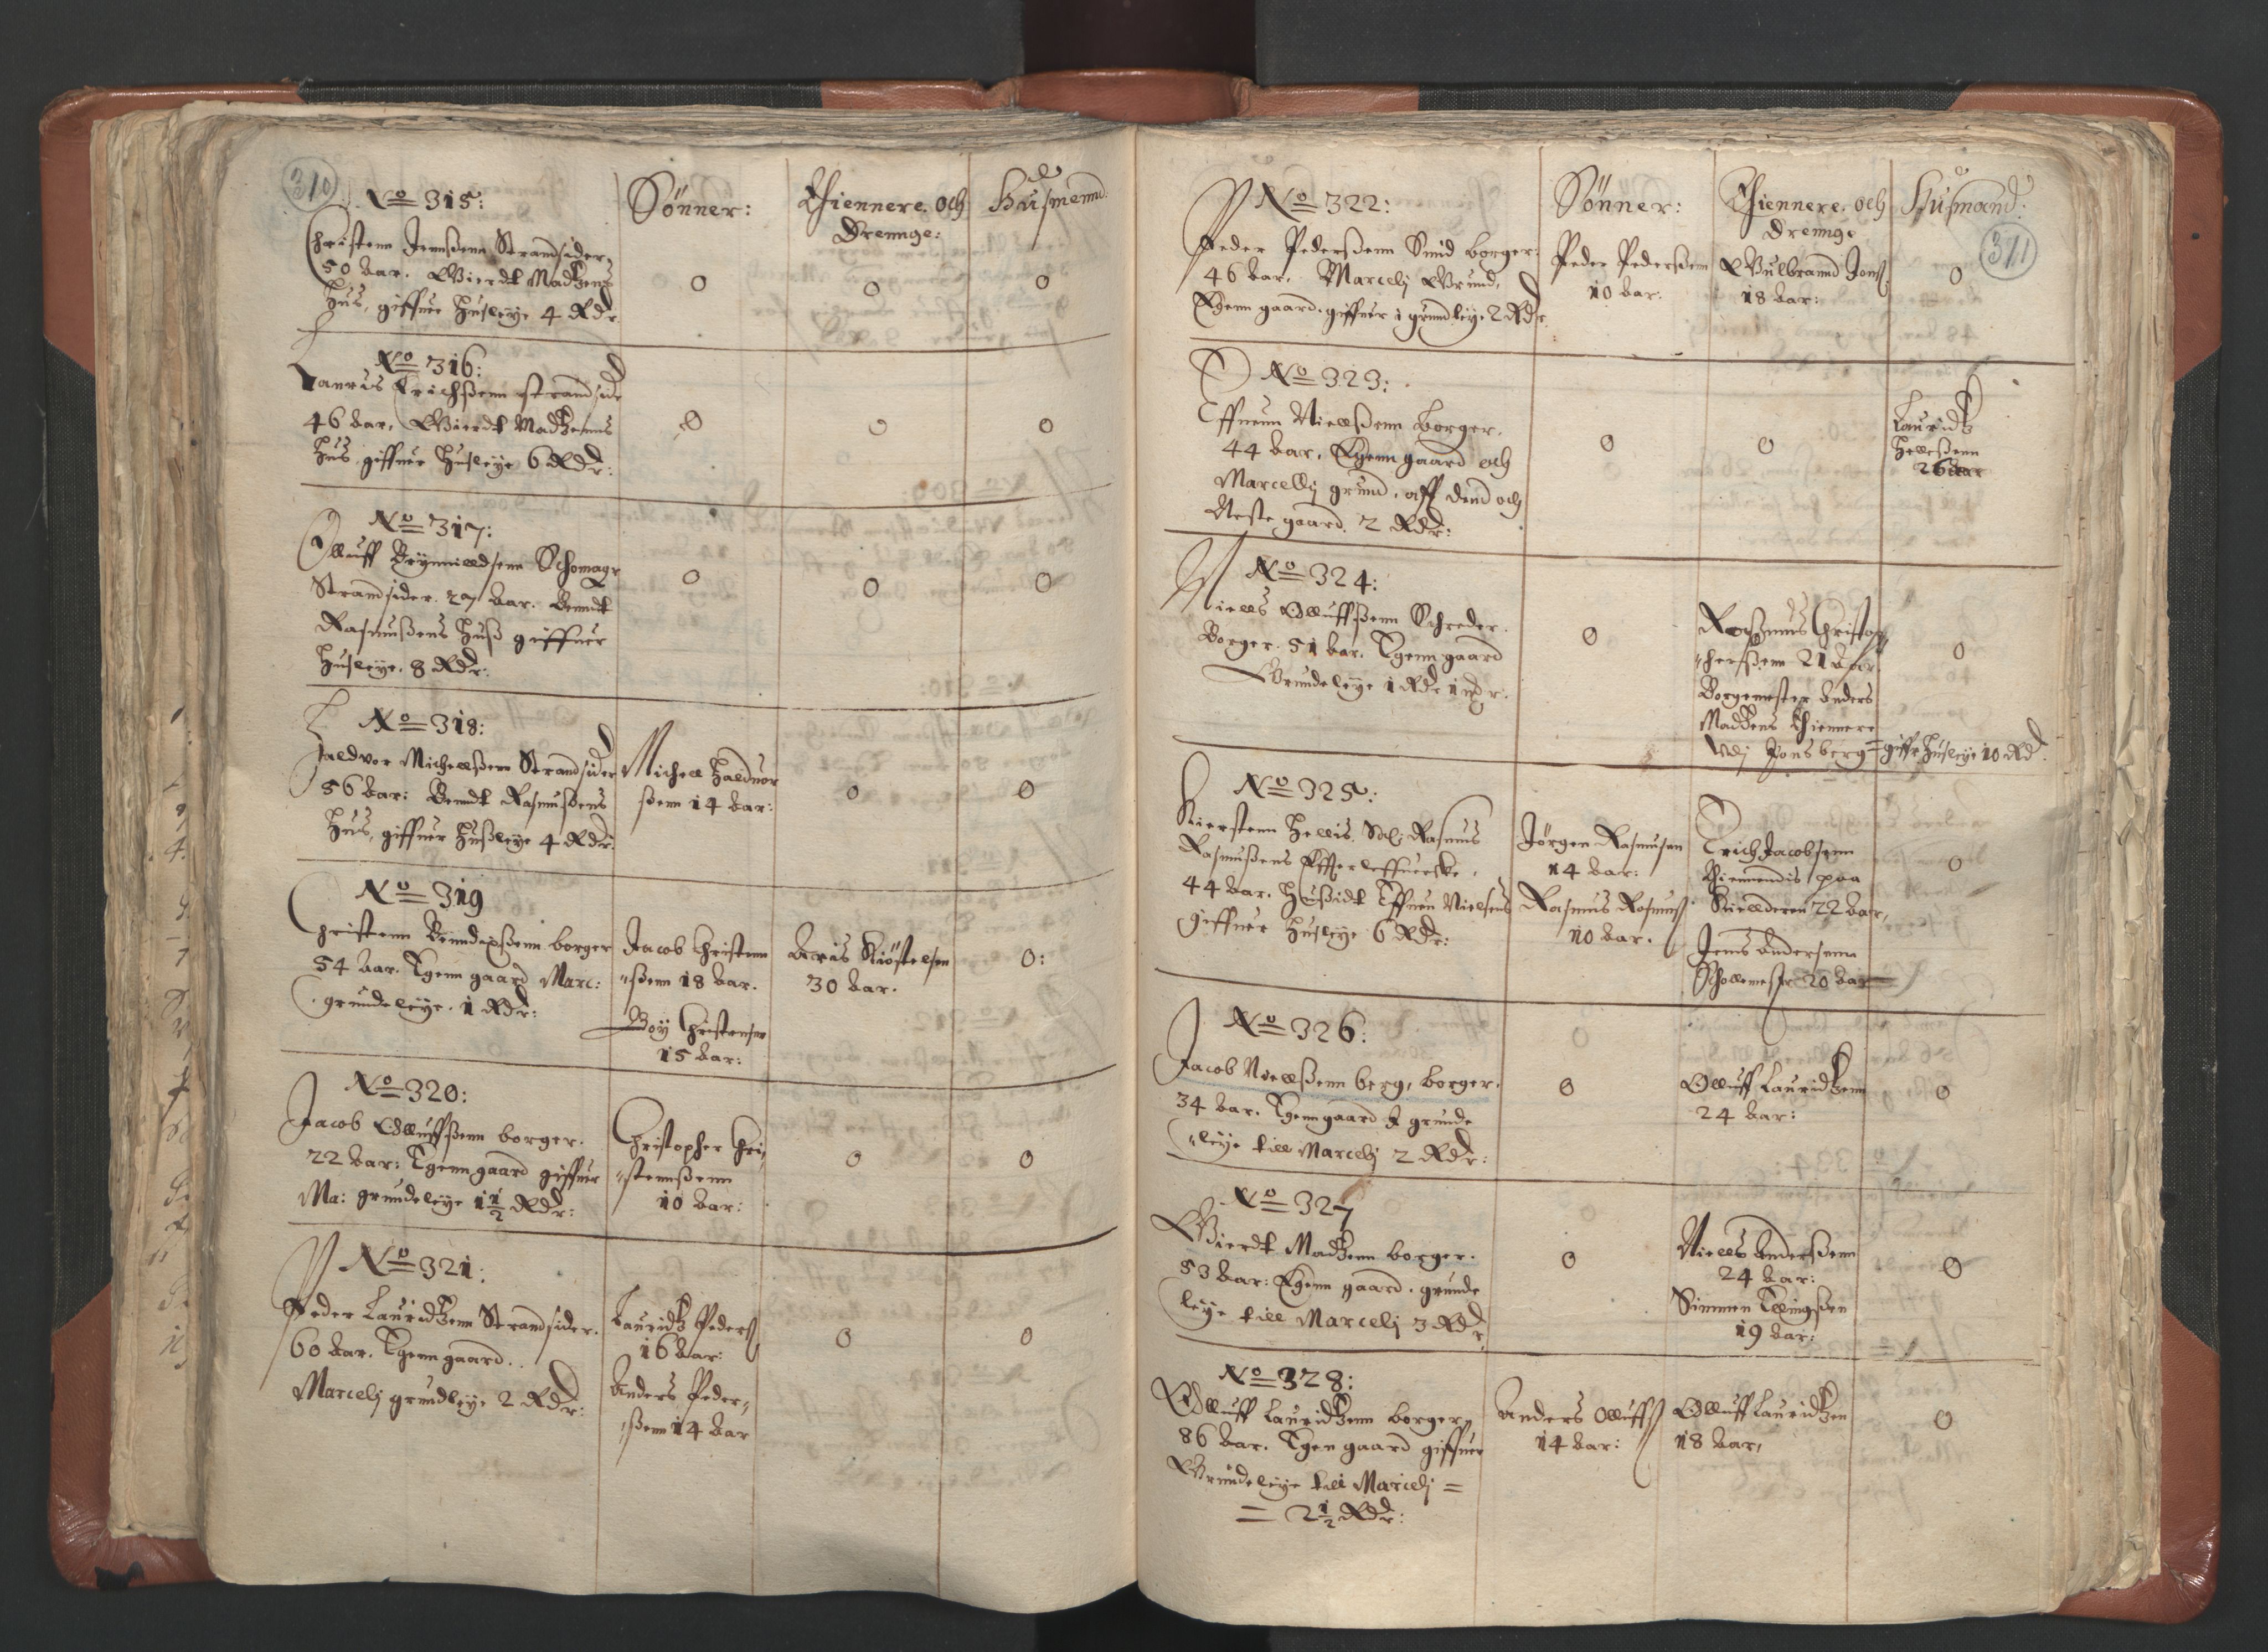 310
No 315:
Sønner:
Thiennere. och
Drennge:
Husmennd:
Christenn Jennßenn Strandsider,
50 Aar. Giertt Madtzens
Huus, giffuer Husleye 4 Rdr.
0
0
0
No 316:
Lauris Erichßenn strandside
46 Aar, Giertt Madtzenns
Hus giffuer Husleye 6 Rdr:
0
0
0
No 317:
Olluff Brynnieldsenn Schomagr
Strandsider. 27 Aar. Benndt
Rasmußens Huß giffuer
Husleye. 8 Rdr:
0
0
0
No 318:
Haldvor Michellßenn Strandsider
56 Aar: Benndt Rasmußens
Hus, giffuer Hußleye 4 Rdr:
Michell Halduor
ßenn 14 Aar:
0
0
No 319
Christenn Benndixßenn borger
54 Aar. Egenn gaard Marc:
grundeleye. 1 Rdr:
Jacob Christenn
ßenn 18 Aar.
Boy Christensen
15 Aar:
Aris Kiøstelsen
30 Aar.
0:
No 320:
Jacob Olluffßenn borger.
22 Aar: Egenn gaard giffuer
Ma: grundeleye 1½ Rdr:
Christopher Chri
stennßenn
10 Aar:
0
0
No 321:
Peder Lauridtzenn Strandsider.
60 Aar. Egenn gaard.
Marcelj grundleye 2 Rdr:
Lauridtz Peders
16 Aar:
Anders Peder
ßenn 14 Aar
0
0
311
No 322:
Sønner:
Thiennere. och
Drennge
Husmænd:
Peder Pederßenn Smid borger:
46 Aar. Marcelj Grund,
Egenn gaard. giffuer i grundleye 2 Rdr
Peder Pederßenn
10 Aar:
Gulbrannd Jons
18 Aar:
0
No 323:
Effuenn Niellßenn Borger.
44 Aar, Egenn gaard och
Marcellj grund, aff dend och
Neste gaard. 2 Rdr:
0
0
Lauridtz
Hellesßenn
26 Aar
No 324:
Niells Olluffßenn Schreder.
Borger. 51 Aar. Egenn gaard
Grundeleye 1 Rdr
0
Raßmus Christop
herßenn 21 Aar
Borgemester Anders
Madtzens Thiennere
Udj Jonsberg = giffr Husleye 10 Rd.
0
No 325:
Kierstenn Hellis. Sal: Rasmus
Rasmußens Effterleffuerske,
44 Aar. Hußidt Effuen Nielsens
giffuer Husleye 6 Rdr:
Jørgen Rasmusen
14 Aar:
Rasmus Rasmuss
10 Aar.
Erich Jacobsenn
Thiennendis paa
Kielderen 22 Aar,
Jens Andersenn
Schollemestr 20 Aar
0
No 326:
Jacob Niellßenn berg, borger.
34 Aar. Egenn gaard & grunde
leye till Marcelj 2 Rdr:
0
Olluff Lauridtzenn
24 Aar:
0
No 327
Gierdt Madtzenn borger.
53 Aar: Egenn gaard. grunde
leye till Marcelj 3 Rdr
0
Niells Anderßenn
24 Aar:
Simmen Ellingßen
19 Aar:
0
No 328:
Olluff Lauridtzenn borger,
86 Aar. Egen gaard giffuer
Grundeleye till Marcelj =
= 2½ Rdr:
Anders Olluffs
14 Aar:
Olluff Lauridtzen
18 Aar,
0